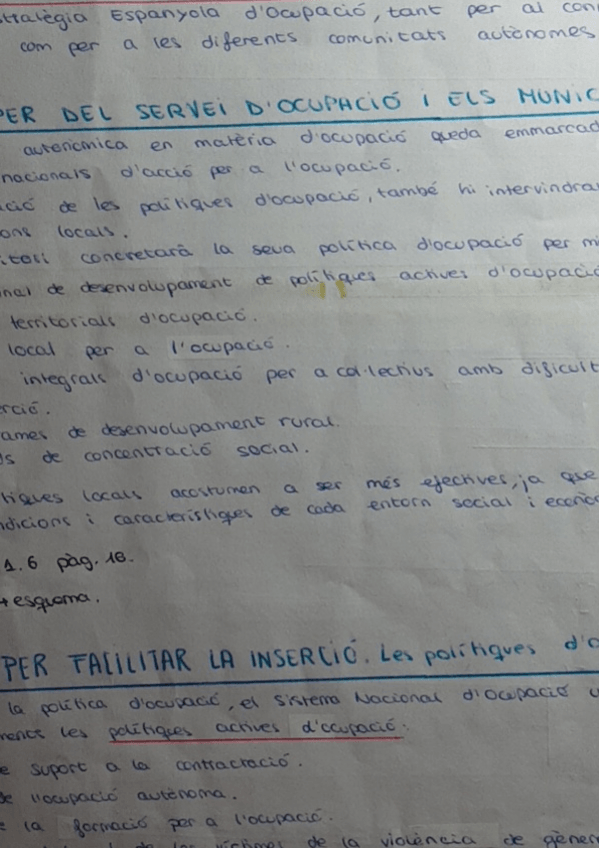 Estratègia Espanyola d'Ocupació, tant per al con
com per a les diferents comunitats autònomes
PER DEL SERVEI D'OCUPACIÓ I ELS MUNIC
autonòmica en matèria d'ocupació queda emmarcad
nacionals d'acció per a l'ocupació.
ició de les polítiques d'ocupació, també hi intervindra
ons locals.
itori concretarà la seva política d'ocupació per mi
nal de desenvolupament de polítiques actives d'ocupació
territorials d'ocupació.
local per a l'ocupació.
integrals d'ocupació per a col·lectius amb dificult
erció.
ames de desenvolupament rural.
s de concentració social.
ítiques locals acostumen a ser més efectives, ja que
ndicions i característiques de cada entorn social i econòm
1.6 pàg. 16.
+ esquema.
PER FACILITAR LA INSERCIÓ. Les polítiques d'o
la política d'ocupació, el Sistema Nacional d'Ocupació
ments les polítiques actives d'ocupació:
e suport a la contractació.
de l'ocupació autònoma.
e la formació per a l'ocupació.
de les víctimes de la violència de gèner